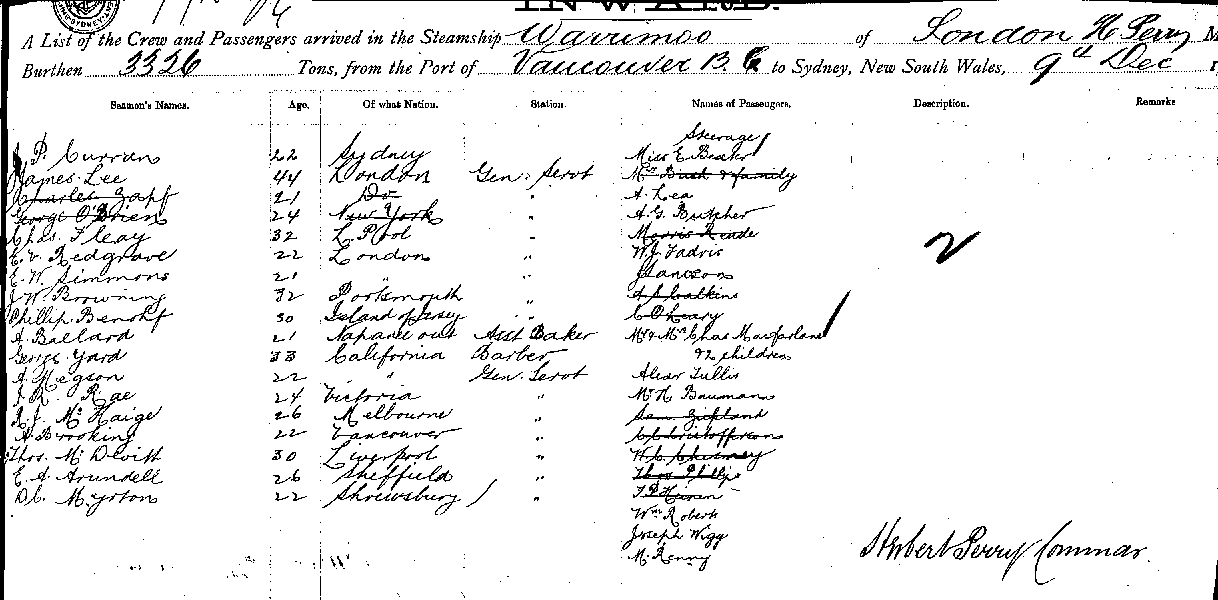 INWARD.
A List of the Crew and Passengers arrived in the Steamship Warrimoo of London H. Perry M
Burthen 3326 Tons, from the Port of Vancouver B. C. to Sydney, New South Wales, 9th Dec 1
Seaman's Names. Age. Of what Nation. Station. Names of Passengers. Description. Remarks
Steerage
P. Curran 22 Sydney Miss E
James Lee 44 London Gen. Servt Mrs Bush & family
Charles Zapf 21 Do " A. Lea
George O'Brien 24 New York " A. G. Butcher
Chas. Fleay 32 L. Pool " Morris
E. V. Redgrave 22 London " W. J.
E. W. Simmons 21 " "
J. W. Browning 32 Portsmouth " Calkins
Phillip 30 Island of Jersey " C O'Leary
A. Ballard 21 Napanee ont Asst Baker Mr & Mrs Chas Macfarlane
George Yard 33 California Barber & 2 children
A. Hegson 22 " Gen. Servt Tullis
J. R. Rae 24 Victoria " Mr H. Baumann
R. J. Mc Haige 26 Melbourne "
A Brooking 22 Vancouver " C Christofferson
Thos. Mc 30 Liverpool " W. C.
E. A. Arundell 26 Sheffield " Thos Phillips
D. C. Myrton 22 Shrewsbury "
Wm Roberts
Joseph Wigg
Mc Kenny
Herbert Perry Commdr.
2